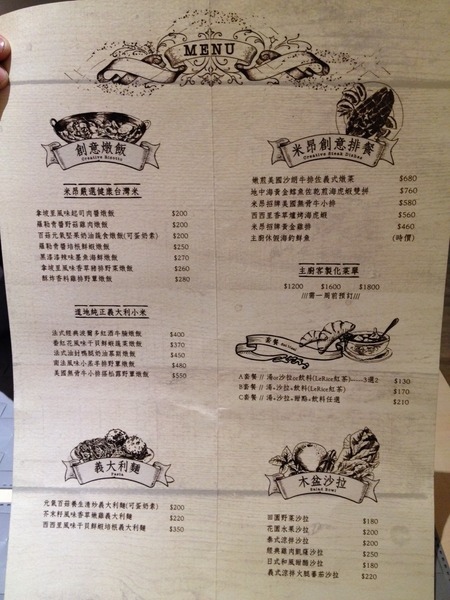 MENU
創意燉飯
Creative Risotto
米昂嚴選健康台灣米
拿坡里風味起司肉醬燉飯 $200
羅勒青醬野菇雞肉燉飯 $200
百菇元氣堅果奶油蔬食燉飯(可蛋奶素) $200
羅勒青醬培根鮮蝦燉飯 $250
黑漆漆辣味墨魚海鮮燉飯 $270
拿坡里風味香草豬排野菜燉飯 $260
酥炸香料雞排野蕈燉飯 $280
道地純正義大利小米
法式經典波爾多紅酒牛腩燉飯 $400
番紅花風味干貝鮮蝦蔬菜燉飯 $370
法式油封鴨腿奶油慕斯燉飯 $450
南法風味小羔羊排野蕈燉飯 $480
美國無骨牛小排搭松露野蕈燉飯 $550
義大利麵
Pasta
元氣百菇養生清炒義大利麵(可蛋奶素) $200
芥末籽風味香草嫩雞義大利麵 $220
西西里風味干貝鮮蝦培根義大利麵 $350
米昂創意排餐
Creative Steak Dishes
嫩煎美國沙朗牛排佐義式燉菜 $680
地中海黃金鱘魚佐乾煎海虎蝦雙拼 $760
米昂招牌美國無骨牛小排 $580
西西里香草爐烤海虎蝦 $560
米昂招牌黃金雞排 $460
主廚休假海釣鮮魚 (時價)
主廚客製化菜單
$1200 $1600 $1800
///需一周前預訂///
套餐 Set Course
A套餐 // 湯or沙拉or飲料(LeRice紅茶)——3選2 $130
B套餐 // 湯+沙拉+飲料(LeRice紅茶) $170
C套餐 // 湯+沙拉+甜點+飲料任選 $210
木盆沙拉
Salad Bowl
田園野菜沙拉 $180
花園水果沙拉 $200
泰式涼拌沙拉 $200
經典雞肉凱薩沙拉 $250
日式和風甜醋沙拉 $180
義式涼拌火腿番茄沙拉 $220